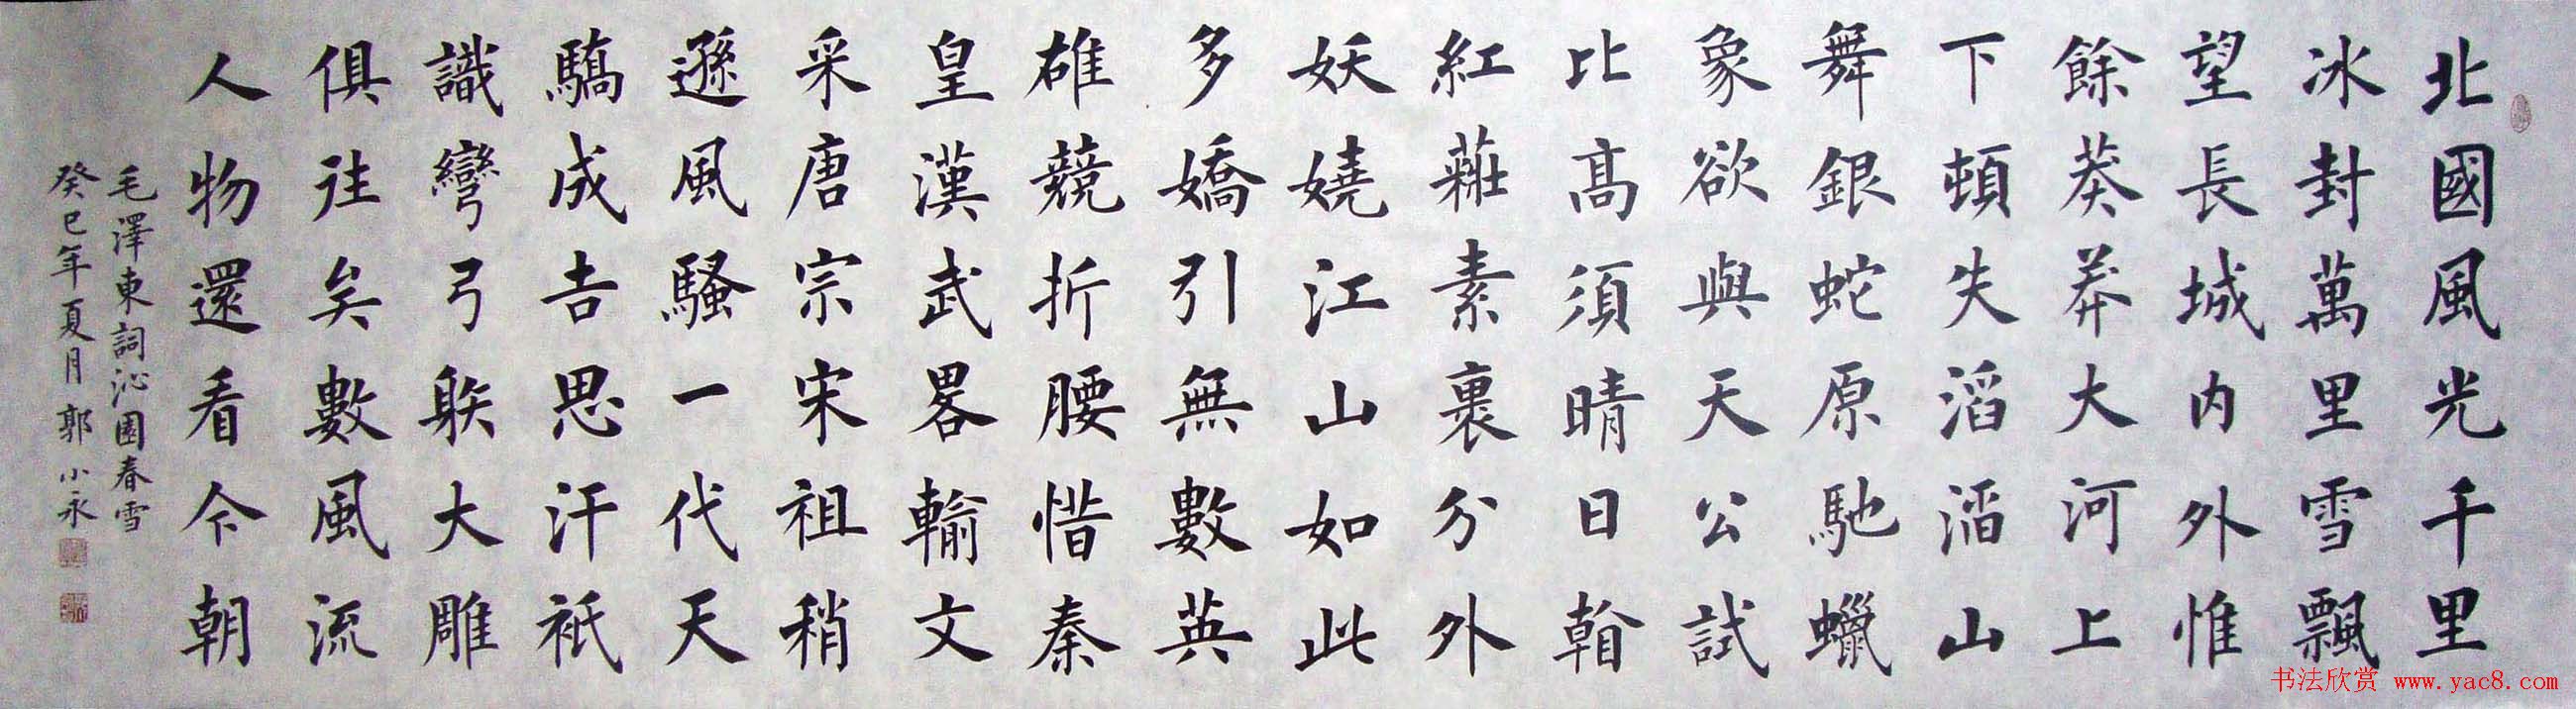 北國風光千里
冰封萬里雪飄
望長城内外惟
餘莽莽大河上
下頓失滔滔山
舞銀蛇原馳蠟
象欲與天公試
比高須晴日看
紅粧素裹分外
妖嬈江山如此
多嬌引無數英
雄競折腰惜秦
皇漢武畧輸文
采唐宗宋祖稍
遜風騷一代天
驕成吉思汗祇
識彎弓䠶大雕
俱往矣數風流
人物還看今朝
毛澤東詞沁園春雪
癸巳年夏月郭小永
书法欣赏 www.yac8.com